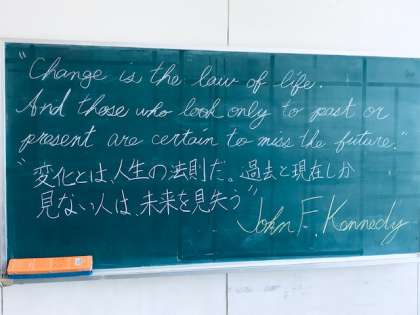 "Change is the law of life.
And those who look only to past or
present are certain to miss the future."
"変化とは、人生の法則だ。過去と現在しか
見ない人は、未来を見失う"
John F. Kennedy